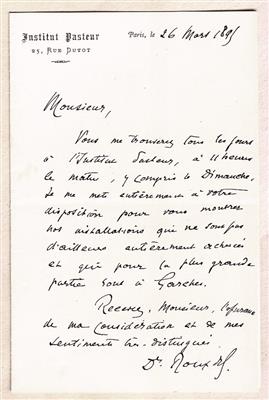 Institut Pasteur
25, Rue Dutot
Paris, le 26 Mars 1895
Monsieur,
Vous me trouverez tous les jours
à l'Institut Pasteur, à 11 heures
le matin, y compris le Dimanche.
Je me mets entièrement à votre
disposition pour vous montrer
nos installations qui ne sont pas
d'ailleurs entièrement achevées
et qui pour la plus grande
partie sont à Garches.
Recevez, Monsieur, l'assurance
de ma considération et de mes
sentiments très distingués
Dr Roux